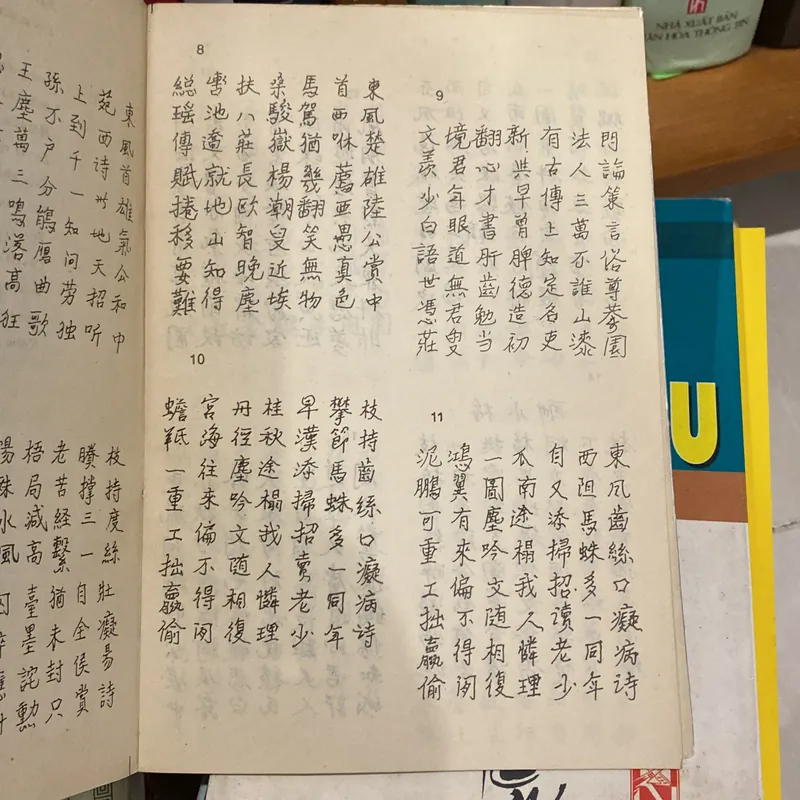 8
東風楚雄陸公賞中
首西咻薦亜愚真色
馬駕猶幾翻笑無物
桑駿嶽楊潮叟近埃
扶八莊長歐智晚塵
轡池遼就地山知得
総瑶傳賦捲移要難
9
閃論策言俗尊蓉園
法人三萬不誰山漆
有古傳上知定名吏
新共早曾脾德造初
翻心才書肝齒勉当
境君年眼道無君叟
文羡少白語世憑莊
10
枝持齒絲口癡病詩
攀節馬蛛多一同年
早漢添掃招賣老少
桂秋途榻我人憐理
丹徑塵吟文随相復
宮海往來偏不得闲
蟾羝一重工拙羸偷
11
東风齒絲口癡病詩
西阻馬蛛多一同年
自又添掃招讀老少
瓜南途榻我人憐理
一圖塵吟文随相復
鴻翼有來偏不得闲
泥鵬可重工拙羸偷
東風首雄氣公和中
苑西诗卅地天招听
上到千一知问劳独
孫不户分鵲厝曲歌
王塵萬三鳴落高狂
枝持度絲壯癡易詩
賸撑三一自全侯賞
老苦経繫猶未封只
梧局减高臺墨詫勳
陽殊水風
NHÀ XUẤT BẢN
VĂN HÓA THÔNG TIN
U